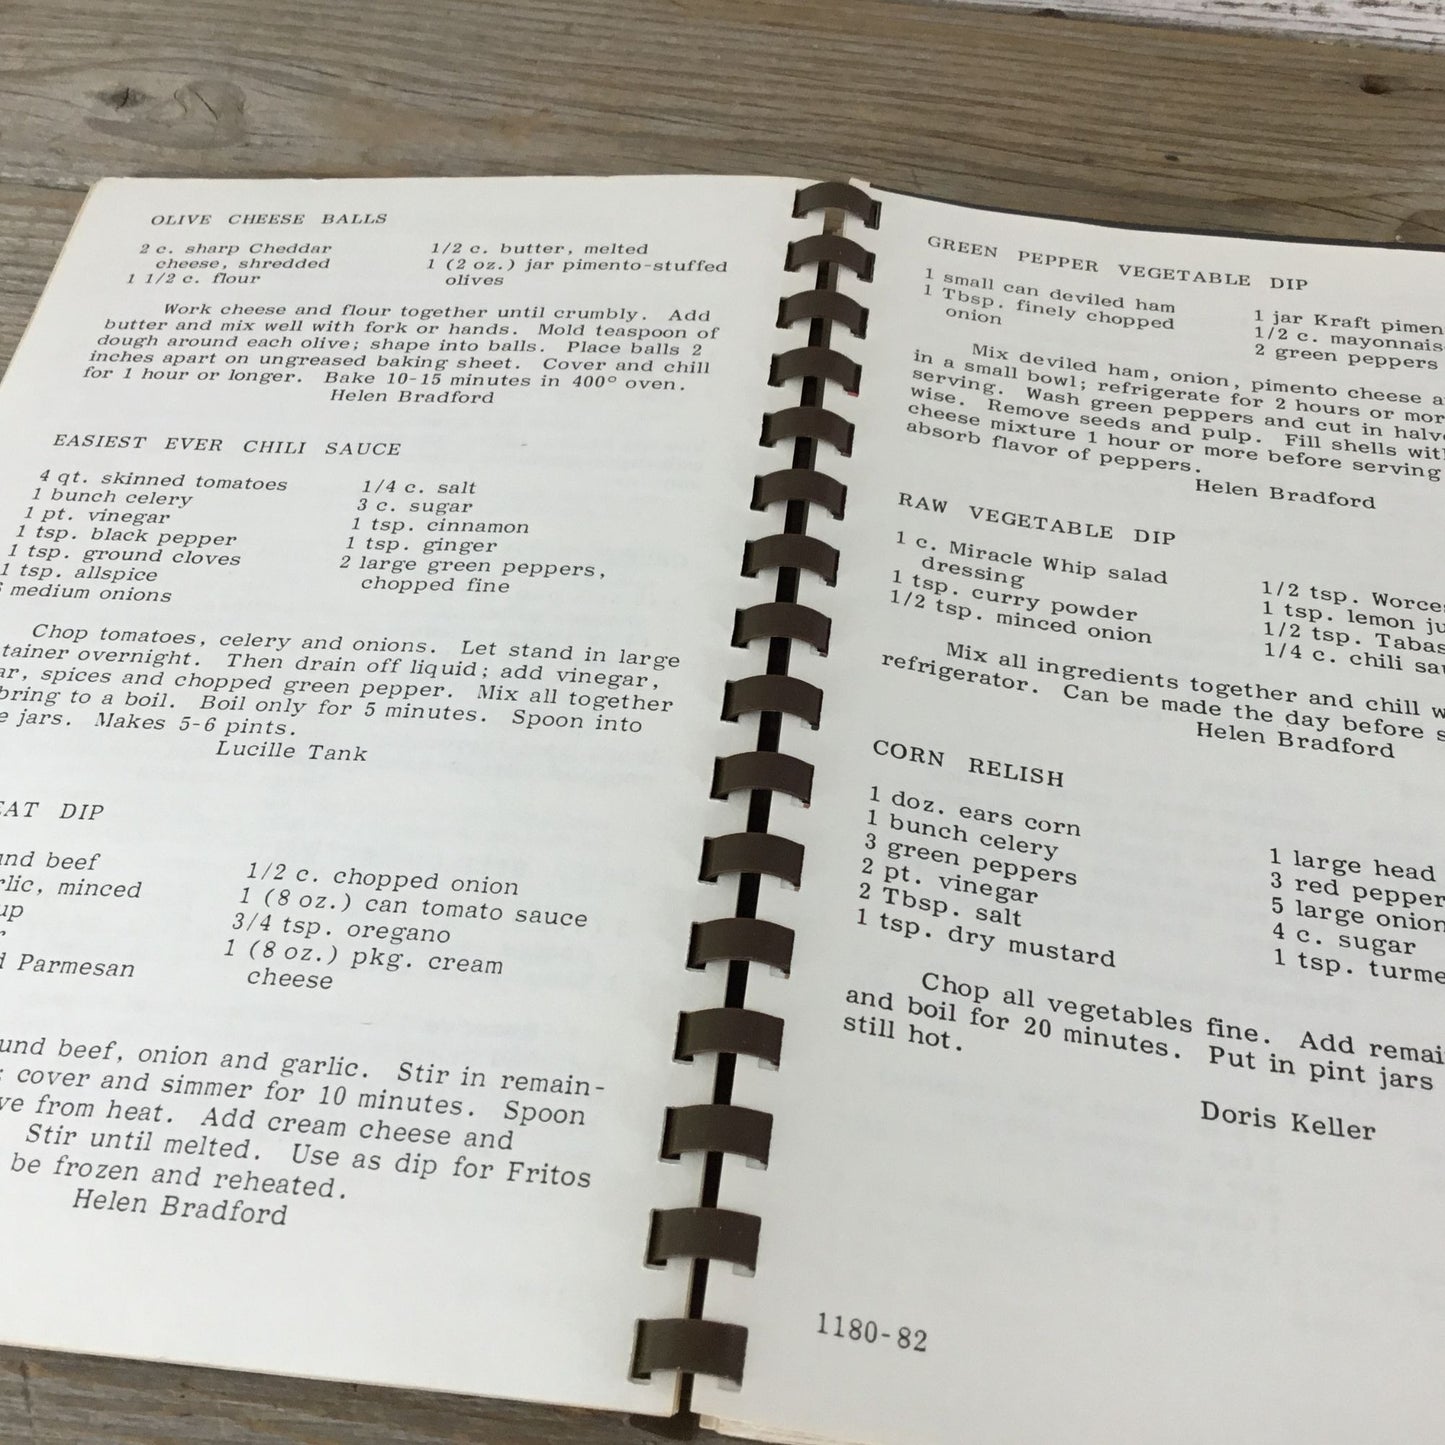 OLIVE CHEESE BALLS
2 c. sharp Cheddar
cheese, shredded
1 1/2 c. flour
1/2 c. butter, melted
1 (2 oz.) jar pimento-stuffed
olives
Work cheese and flour together until crumbly. Add
butter and mix well with fork or hands. Mold teaspoon of
dough around each olive; shape into balls. Place balls 2
inches apart on ungreased baking sheet. Cover and chill
for 1 hour or longer. Bake 10-15 minutes in 400° oven.
Helen Bradford
EASIEST EVER CHILI SAUCE
4 qt. skinned tomatoes
1 bunch celery
1 pt. vinegar
1 tsp. black pepper
1 tsp. ground cloves
1 tsp. allspice
medium onions
1/4 c. salt
3 c. sugar
1 tsp. cinnamon
1 tsp. ginger
2 large green peppers,
chopped fine
Chop tomatoes, celery and onions. Let stand in large
tainer overnight. Then drain off liquid; add vinegar,
ar, spices and chopped green pepper. Mix all together
bring to a boil. Boil only for 5 minutes. Spoon into
e jars. Makes 5-6 pints.
Lucille Tank
EAT DIP
und beef
rlic, minced
up
r
d Parmesan
1/2 c. chopped onion
1 (8 oz.) can tomato sauce
3/4 tsp. oregano
1 (8 oz.) pkg. cream
cheese
und beef, onion and garlic. Stir in remain-
; cover and simmer for 10 minutes. Spoon
ve from heat. Add cream cheese and
Stir until melted. Use as dip for Fritos
be frozen and reheated.
Helen Bradford
GREEN PEPPER VEGETABLE DIP
1 small can deviled ham
1 Tbsp. finely chopped
onion
1 jar Kraft pimen
1/2 c. mayonnais
2 green peppers
Mix deviled ham, onion, pimento cheese a
in a small bowl; refrigerate for 2 hours or mor
serving. Wash green peppers and cut in halv
wise. Remove seeds and pulp. Fill shells wit
cheese mixture 1 hour or more before serving
absorb flavor of peppers.
Helen Bradford
RAW VEGETABLE DIP
1 c. Miracle Whip salad
dressing
1 tsp. curry powder
1/2 tsp. minced onion
1/2 tsp. Worces
1 tsp. lemon ju
1/2 tsp. Tabas
1/4 c. chili sau
Mix all ingredients together and chill w
refrigerator. Can be made the day before s
Helen Bradford
CORN RELISH
1 doz. ears corn
1 bunch celery
3 green peppers
2 pt. vinegar
2 Tbsp. salt
1 tsp. dry mustard
1 large head
3 red pepper
5 large onion
4 c. sugar
1 tsp. turme
Chop all vegetables fine. Add remai
and boil for 20 minutes. Put in pint jars
still hot.
Doris Keller
1180-82